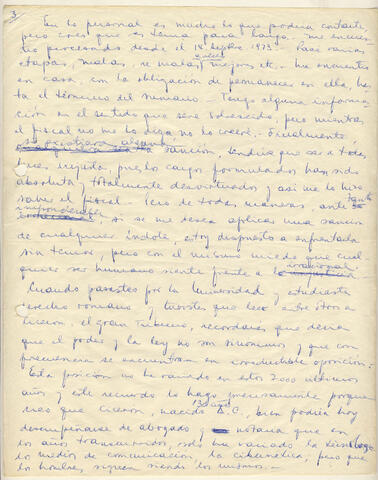 3
En lo personal es mucho lo que podría contarte,
pero creo que es tema para largo. Me encuen-
tro procesado desde el 18 septbre 1973. Pasé varias
etapas, malas, mejores, etc. Me encuentro
en casa, con la obligación de permanecer en ella, has-
ta el término del sumario. Tengo alguna informa-
ción en el sentido que seré sobreseído, pero mientras
el fiscal no me lo diga no lo creeré. Igualmente,
si existiera alguna sanción, tendría que ser a todas
luces injusta, pues los cargos formulados han sido
absoluta y totalmente desvirtuados y así me lo hizo
saber el fiscal. Pero de todas maneras, ante tanto
imponderable, si se me desea aplicar una sanción
de cualquier índole, estoy dispuesto a enfrentarla
sin temor, pero con el mismo miedo que cual-
quier ser humano siente frente a lo irracional.
Cuando pasaste por la Universidad y estudiaste
derecho romano y tuviste que leer entre otros a
Ciceron, el gran tribuno, recordarás que decía
que el poder y la ley no son sinónimos y que con
frecuencia se encuentran en irreductible oposición.
Esta posición no ha variado en estos 2000 últimos
años y este recuerdo lo hago precisamente porque
creo que Ciceron, nacido A.C., bien podría hoy
desempeñarse de abogado y notaría que en
los años transcurridos, sólo ha variado la tecnología
los medios de comunicación, la cibernética, pero que
los hombres, siguen siendo los mismos.-